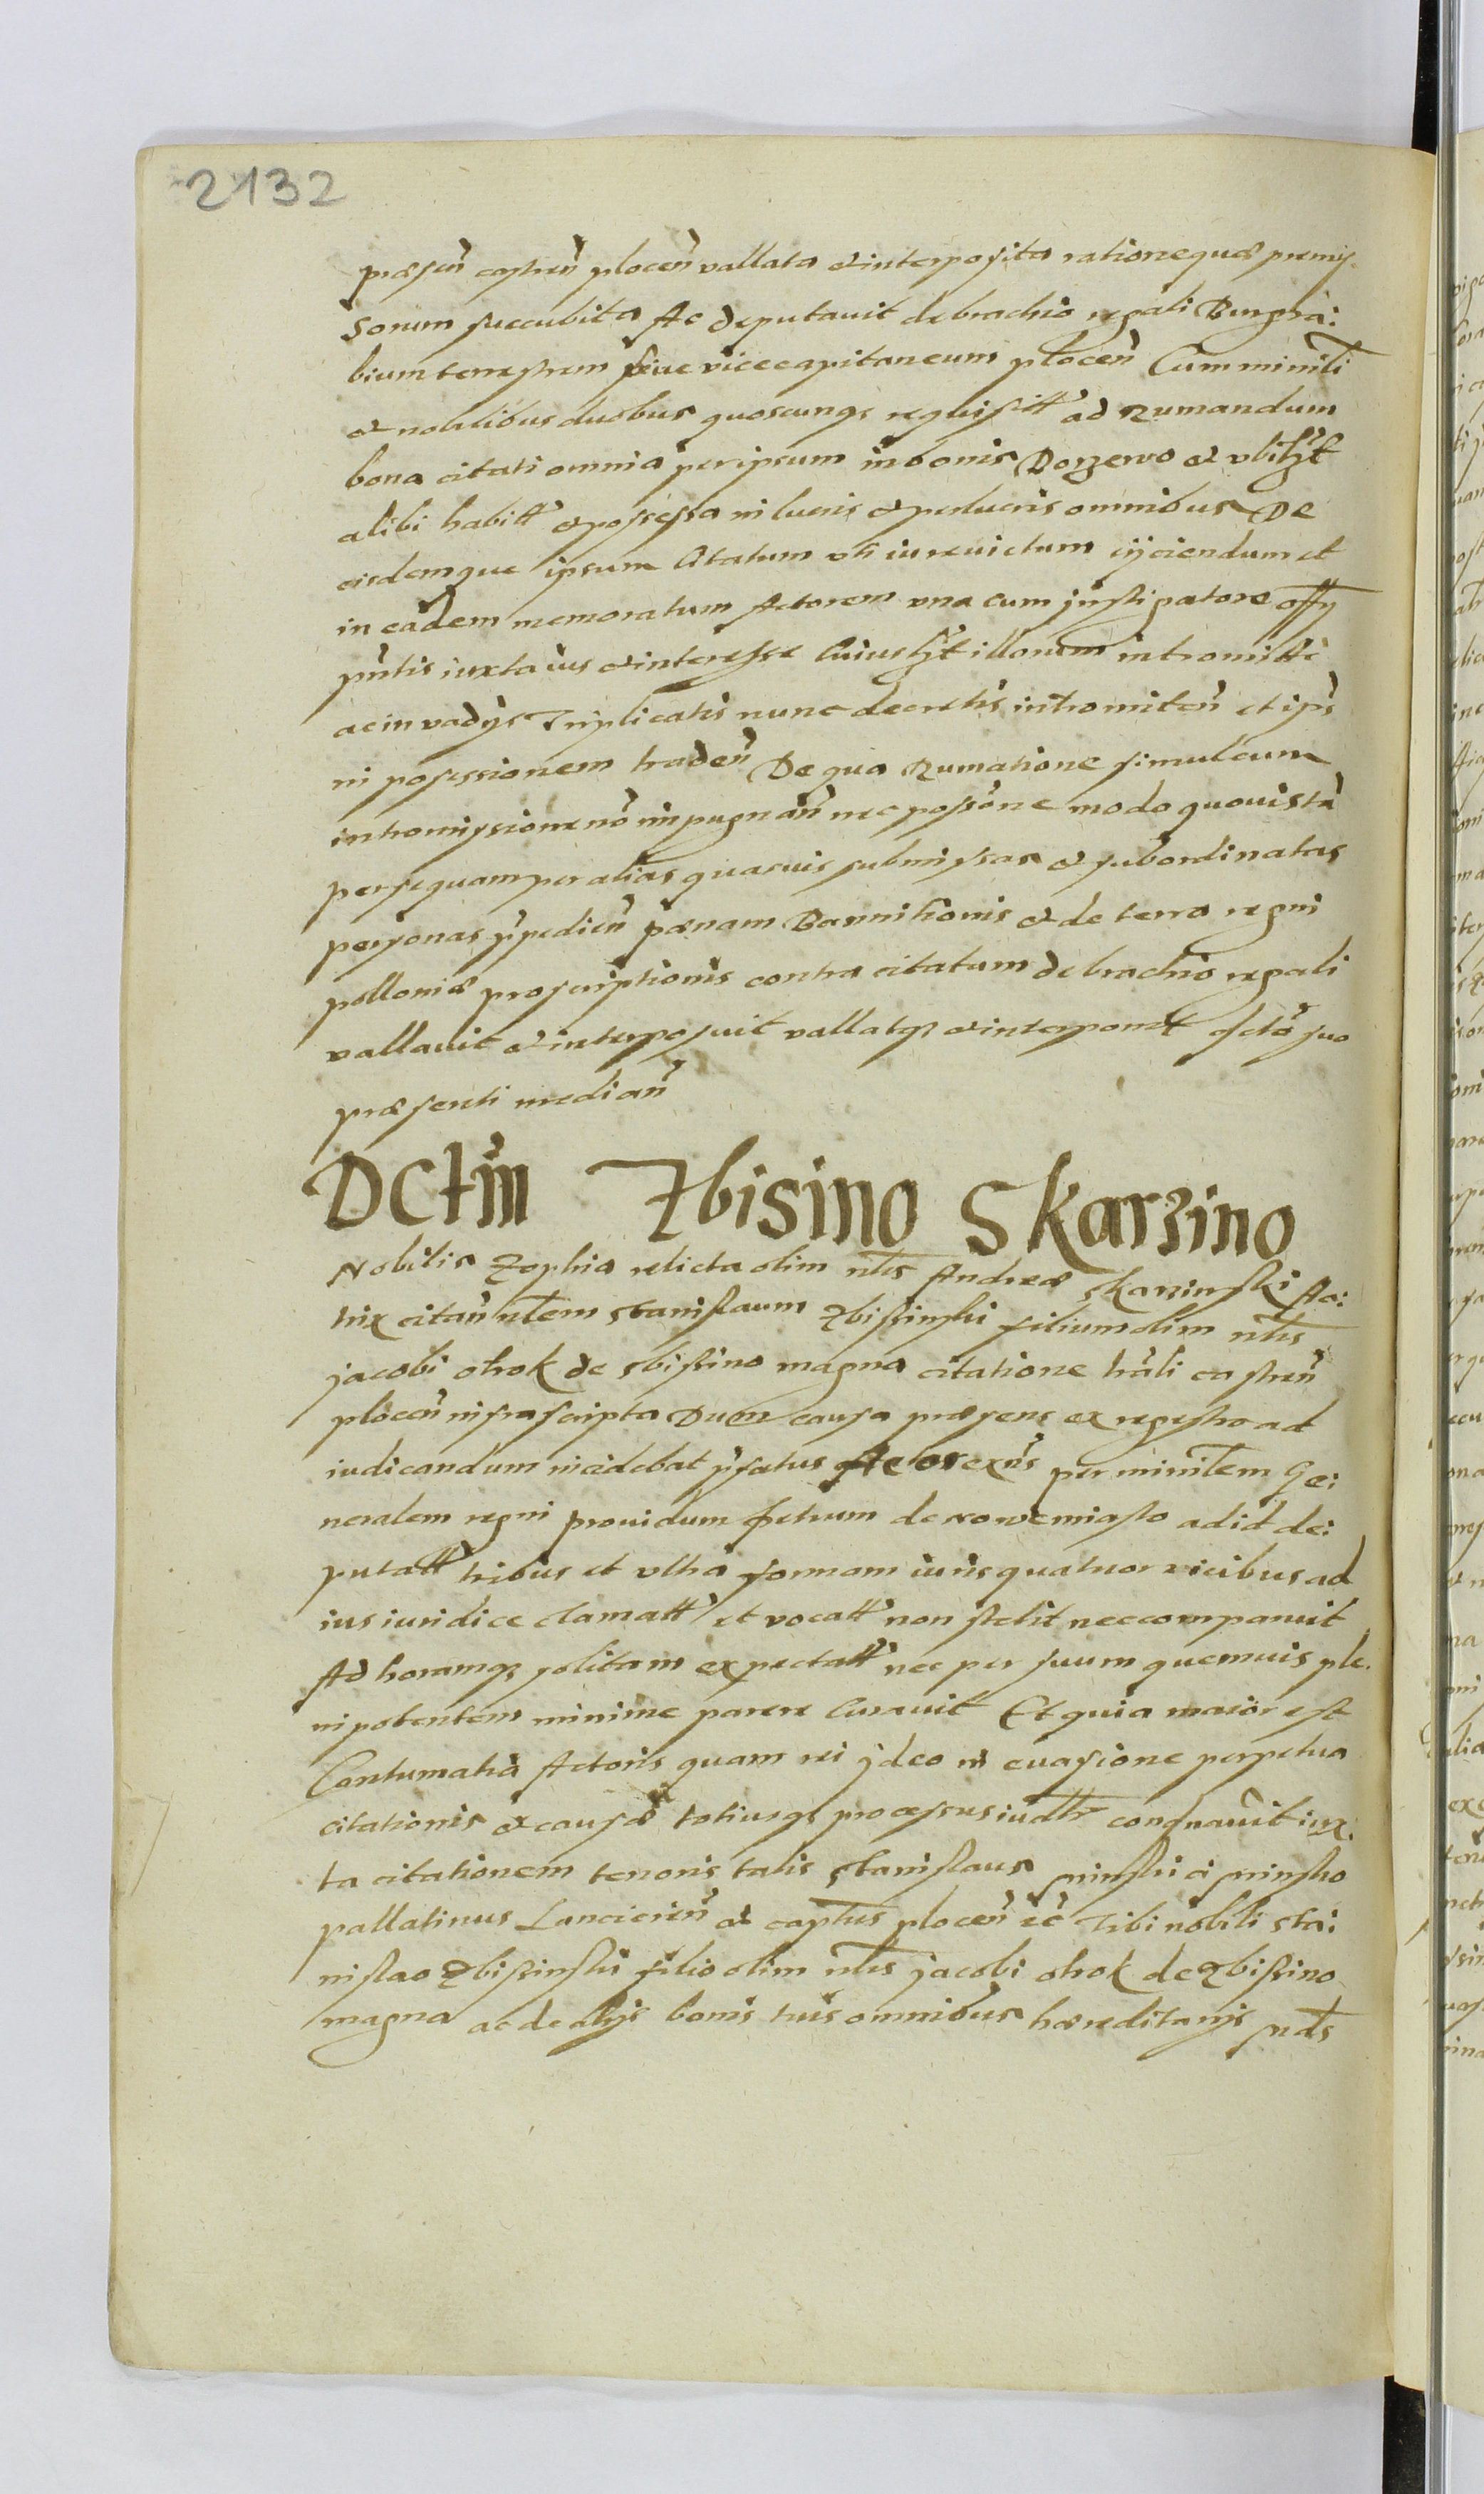 2132
præsen castren plocen vallata et interposita rationequæ premis
sorum succubita Ac deputauit de brachio regali Burgra:
bium terrestrem seue vicecapitaneum plocen Cum minli
et nobilibus duobus quoscunq requisitt ad Rumandum
bona citati omnia peripsum in bonis Dorzewo et vbilzt
alibi habitt et possessa in lucris et perlucris omnibus De
eisdemque ipsum Citatum vti iurevictum eijciendum et
in eadem memoratum Actorem vna cum justigatore offy
pntis iuxta ius et interesse Cuiuslzt illorum intromitti
ac in vadys Triplicatis nunc decretis intromitten et ips
in possessionem traden De qua Rumatione simulcum
intromissione no impugnan nec possone modo quouis ta
per se quam per alias quasuis submissas et subordinatas
personas ppedien pænam Bannitionis et de terra regni
polloniæ proscriptionis contra citatum de brachio regali
vallauit et interposuit vallatq et interponit scto suo
præsenti median
Dctm Zbisino Skarzino
Nobilis Zophia relicta olim nlis Andreæ Skarzinski Ac:
trix citan nlem Stanislaum Zbissinski filium olim nlis
jacobi otrok de sbissino magna citatione trali castren
plocen infrascripta Dum causa præsens ex regestro ad
iudicandum incidebat pfatus Actor exns per ministem Ge:
neralem regni prouidum petrum de nowemiasto ad id de:
putatt tribus et vltra formam iuris quatuor vicibus ad
ius iuridice clamatt et vocatt non stetit nec comparuit
Ad horamq solitam expectatt nec per suum quemuis ple.
nipotentem minime parere Curauit Et quia maior est
Contumatia Actoris quam rei jdeo in euasione perpetua
citationis et causæ totiusq processus iudtr condnauit iux:
ta citationem tenoris talis Stanislaus
pallatinus Lancicien et captus plocen ec Tibi nobili Sta:
nislao Zbissinski filio olim nlis jacobi otrok de Zbissino
magna ac de alijs bonis tuis omnibus hæreditarijs pnds